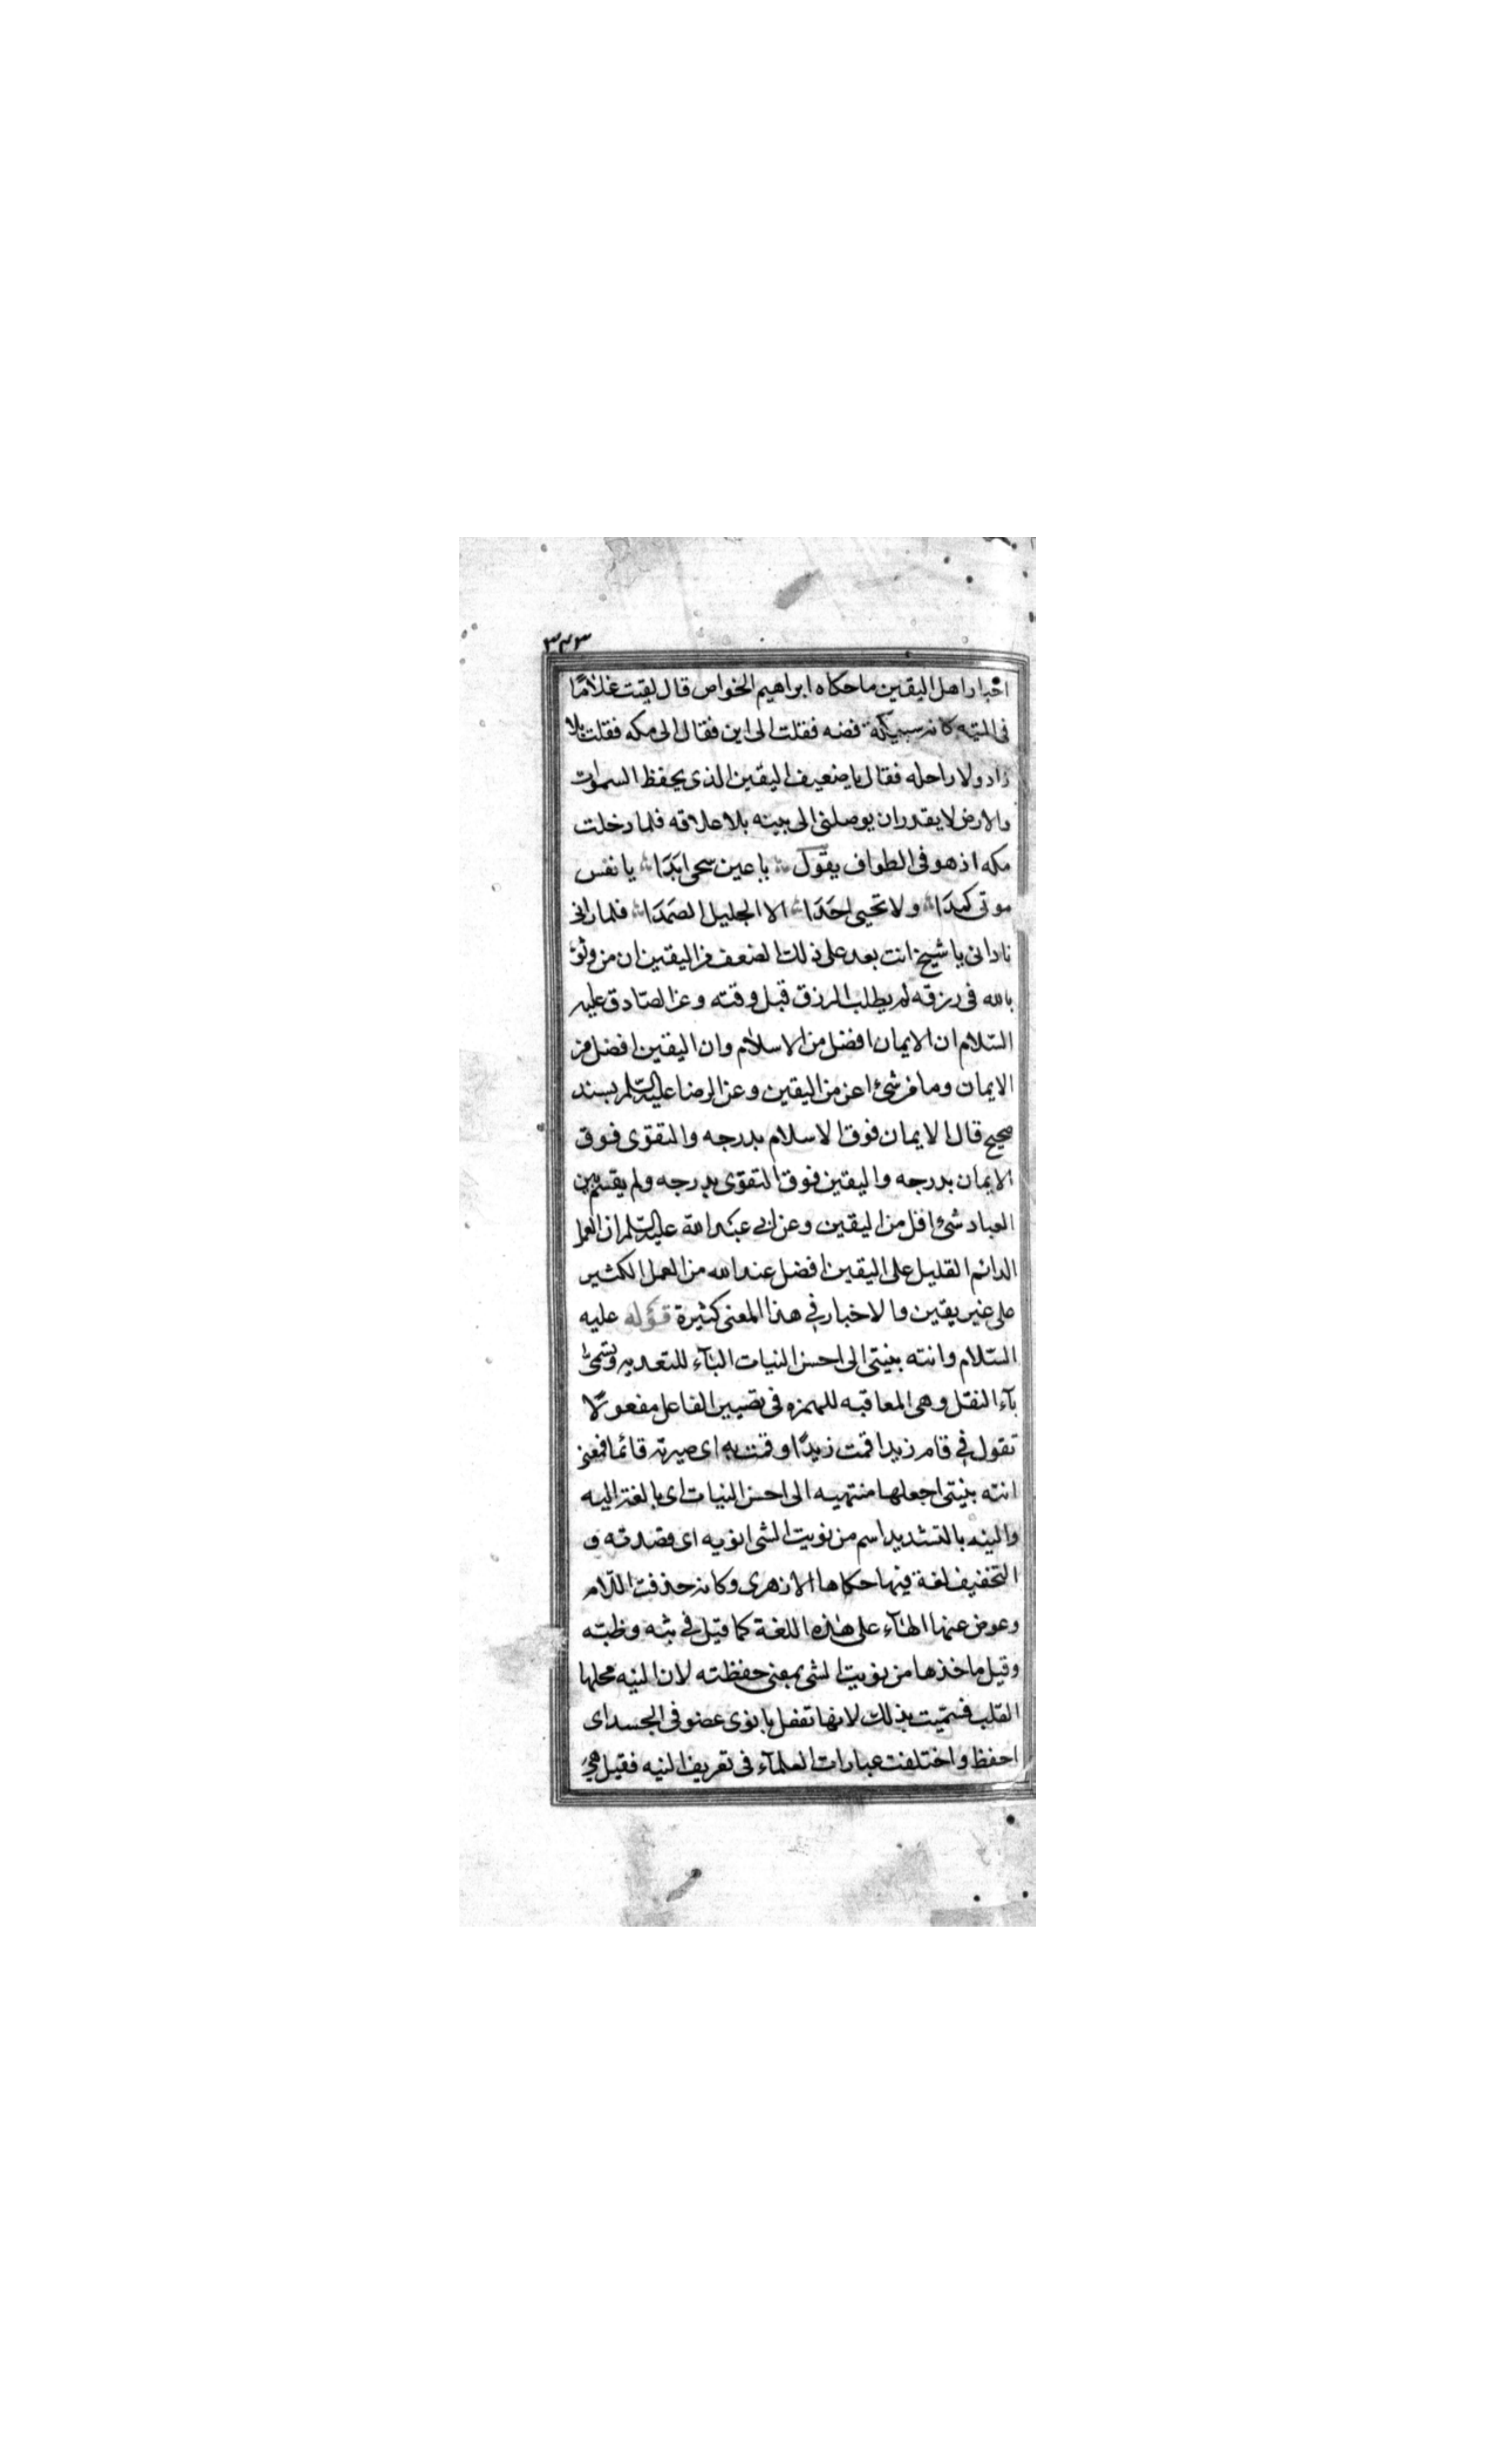 ٣٤٣
اخبار اهل اليقين ما حكاه ابراهيم الخواص قال لقيت غلامًا
فى التيه كانه سبيكة فضه فقلت الى اين فقال الى مكه فقلت بلا
زاد ولا راحله فقال يا ضعيف اليقين الذى يحفظ السموات
والارض لا يقدر ان يوصلنى الى بيته بلا علاقه فلما دخلت
مكه اذ هو فى الطواف يقول يا عين سحى ابَدَا يا نفس
موتى كمدَا ولا تحبى احَدَا الا الجليل الصمَدَا فلما رانى
نادانى يا شيخ انت بعد على ذلك الضعف من اليقين ان من وثق
بالله فى رزقه لم يطلب الرزق قبل وقته وعن الصّادق عليه
السّلام ان الايمان افضل من الاسلام وان اليقين افضل من
الايمان وما من شئ اعز من اليقين وعن الرضا عليه السّلم بسند
صحيح قال الايمان فوق الاسلام بدرجه والتقوى فوق
الايمان بدرجه واليقين فوق التقوى بدرجه ولم يقسم بين
العباد شئ اقل من اليقين وعن ابى عبد الله عليه السّلم ان العمل
الدائم القليل على اليقين افضل عند الله من العمل الكثير
على غير يقين والاخبار في هذا المعنى كثيرة قوله عليه
السّلام وانته بنيتى الى احسن النيات البآء للتعديه وتسمى
بآء النقل وهى المعاقبه للهمزه فى تصيير الفاعل مفعولًا
تقول في قام زيد اقمت زيدًا وقمت به اى صيرته قائما فمعنى
انته بنيتى اجعلها منتهيه الى احسن النيات اى بالغة اليه
والنيه بالتشديد اسم من نويت الشى انويه اى قصدته و
التخفيف لغة فيها حكاها الازهرى وكانه حذفت اللّام
وعوض عنها الهآء على هذه اللغة كما قيل في ثبه وظبّه
وقيل ماخذها من نويت الشى بمعنى حفظته لان النيه محلها
القلب فسمّيت بذلك لانها تفعل بانوى عضو فى الجسد اى
احفظ واختلفت عبارات العلمآء فى تعريف النيه فقيل هي